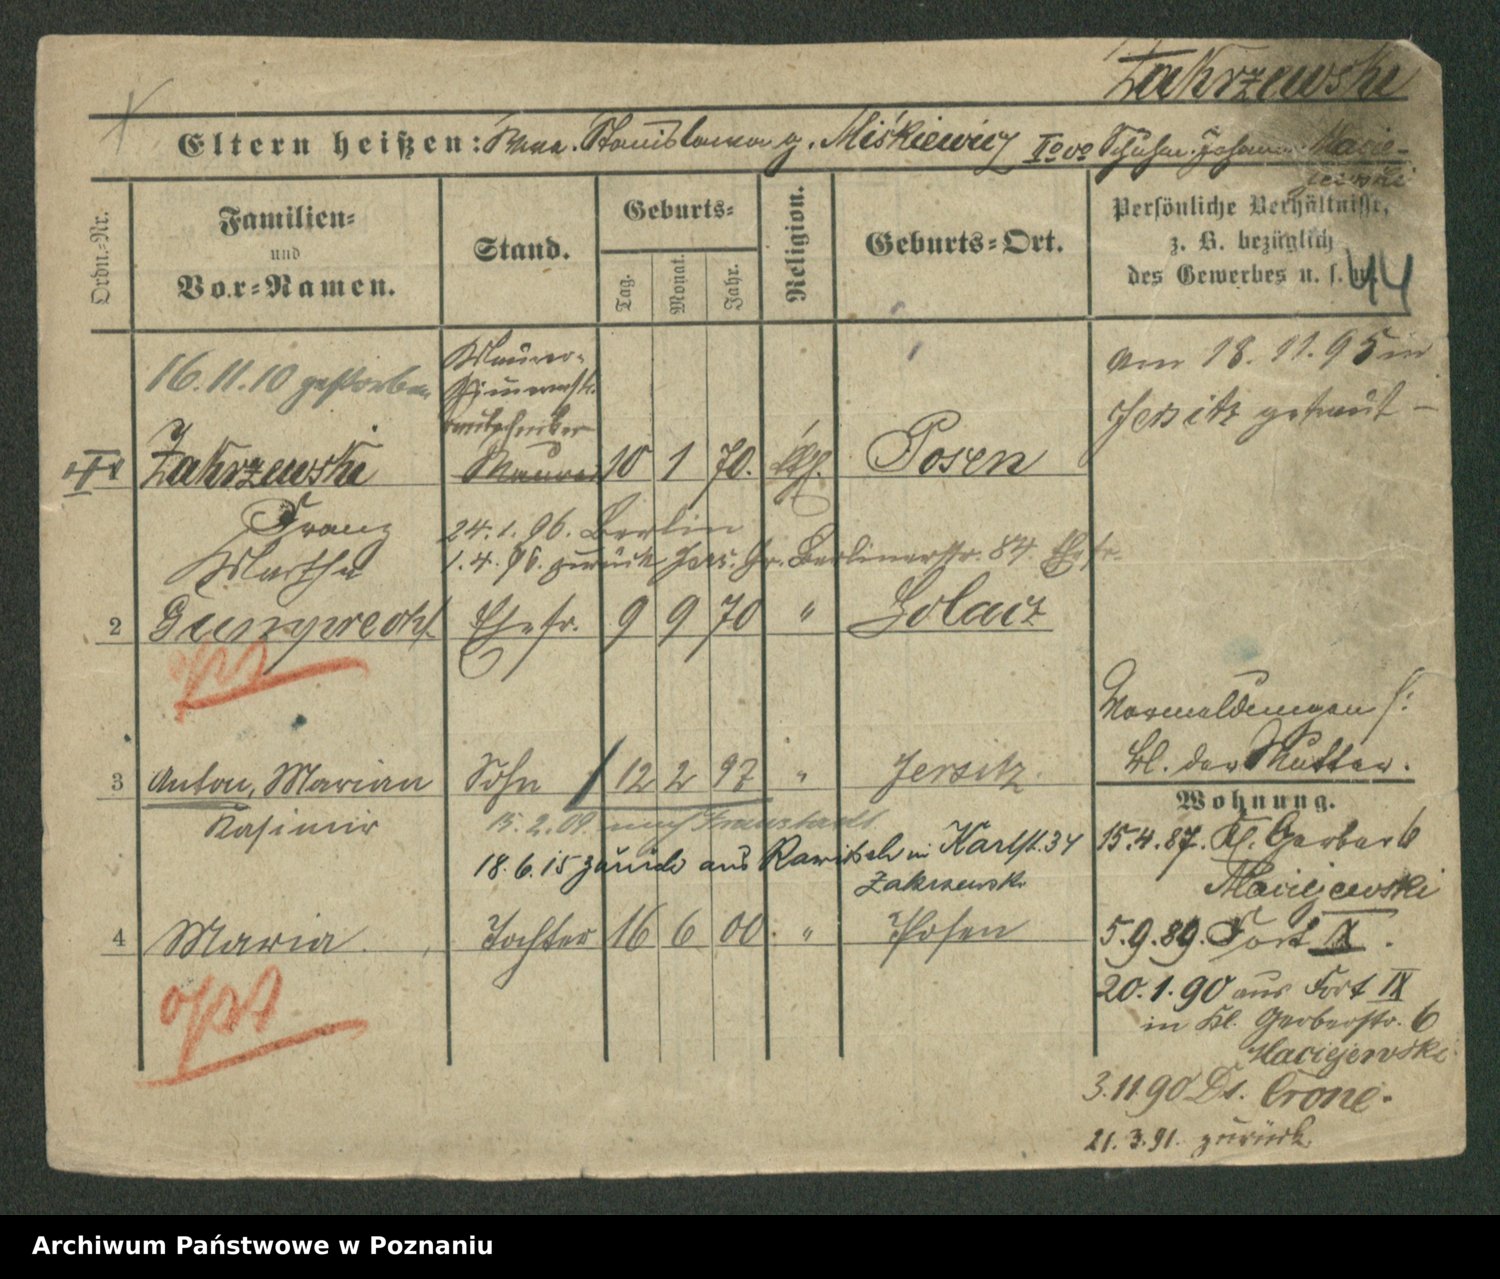 Zakrzewski
Eltern heißen: Stanislawa g. Miśkiewicz IIo vo Maciejewski
Ordn.-Nr.
Familien- und Vor-Namen.
Stand.
Geburts-
Tag.
Monat.
Jahr.
Religion.
Geburts-Ort.
Persönliche Verhältnisse,
z. B. bezüglich
des Gewerbes u. s. w.
44
16.11.10 gestorben
Maurer-
Maurer
am 18.11.95 in
Jersitz getraut –
Zakrzewski 10 1 70. Posen
Franz
24.1.96. Berlin
1.4.96. zurück Jers. Gr. Berlinerstr. 84. Ehefr.
Martha
2 Gumprecht Ehefr. 9 9 70 " Solacz
opt
Vormeldungen s:
Bl. der Mutter.
3 Anton, Marian Sohn 12 2 97 " Jersitz.
Kasimir
15.2.09. nach Fraustadt
18.6.15 zurück aus Rawitsch in Karlst. 34
Zakrzewski
4 Maria Tochter 16 6 00. " Posen
opt
Wohnung.
15.4.87. Kl. Gerber 6
Maciejewski
5.9.89. Fort IX.
20.1.90 aus Fort IX
in Kl. Gerberstr. 6
Maciejewski
3.11.90 Dt. Crone.
21.3.91. zurück.
Archiwum Państwowe w Poznaniu